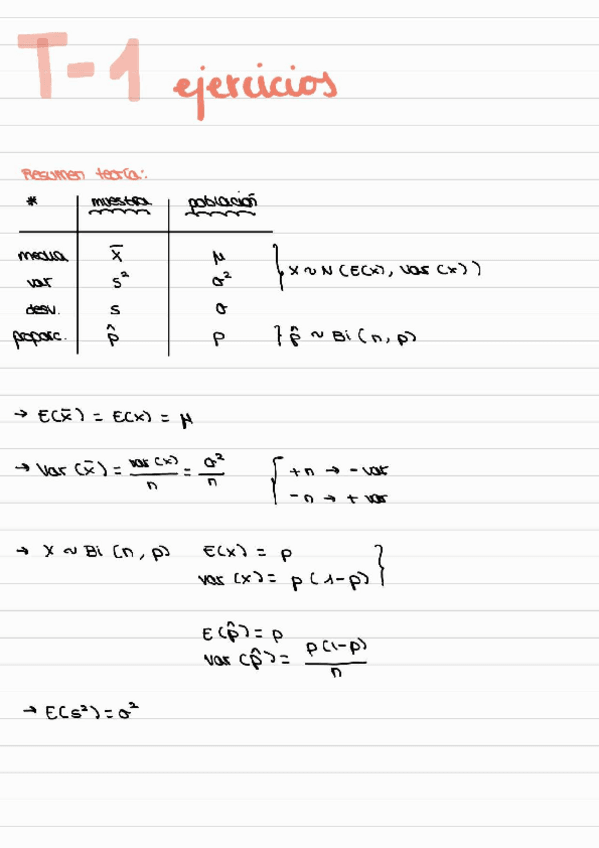 T-1 ejercicios
Resumen teoría:
* muestra población
media x̄ μ } X ~ N (E(x), Var (x))
var s² σ²
desv. s σ
poporc. p̂ p } p̂ ~ Bi (n, p)
→ E(x̄) = E(x) = μ
→ Var (x̄) = var (x)/n = σ²/n { +n → - var
-n → + var
→ X ~ Bi (n, p) E(x) = p }
var (x) = p (1-p)
E(p̂) = p
var (p̂) = p(1-p)/n
→ E(s²) = σ²